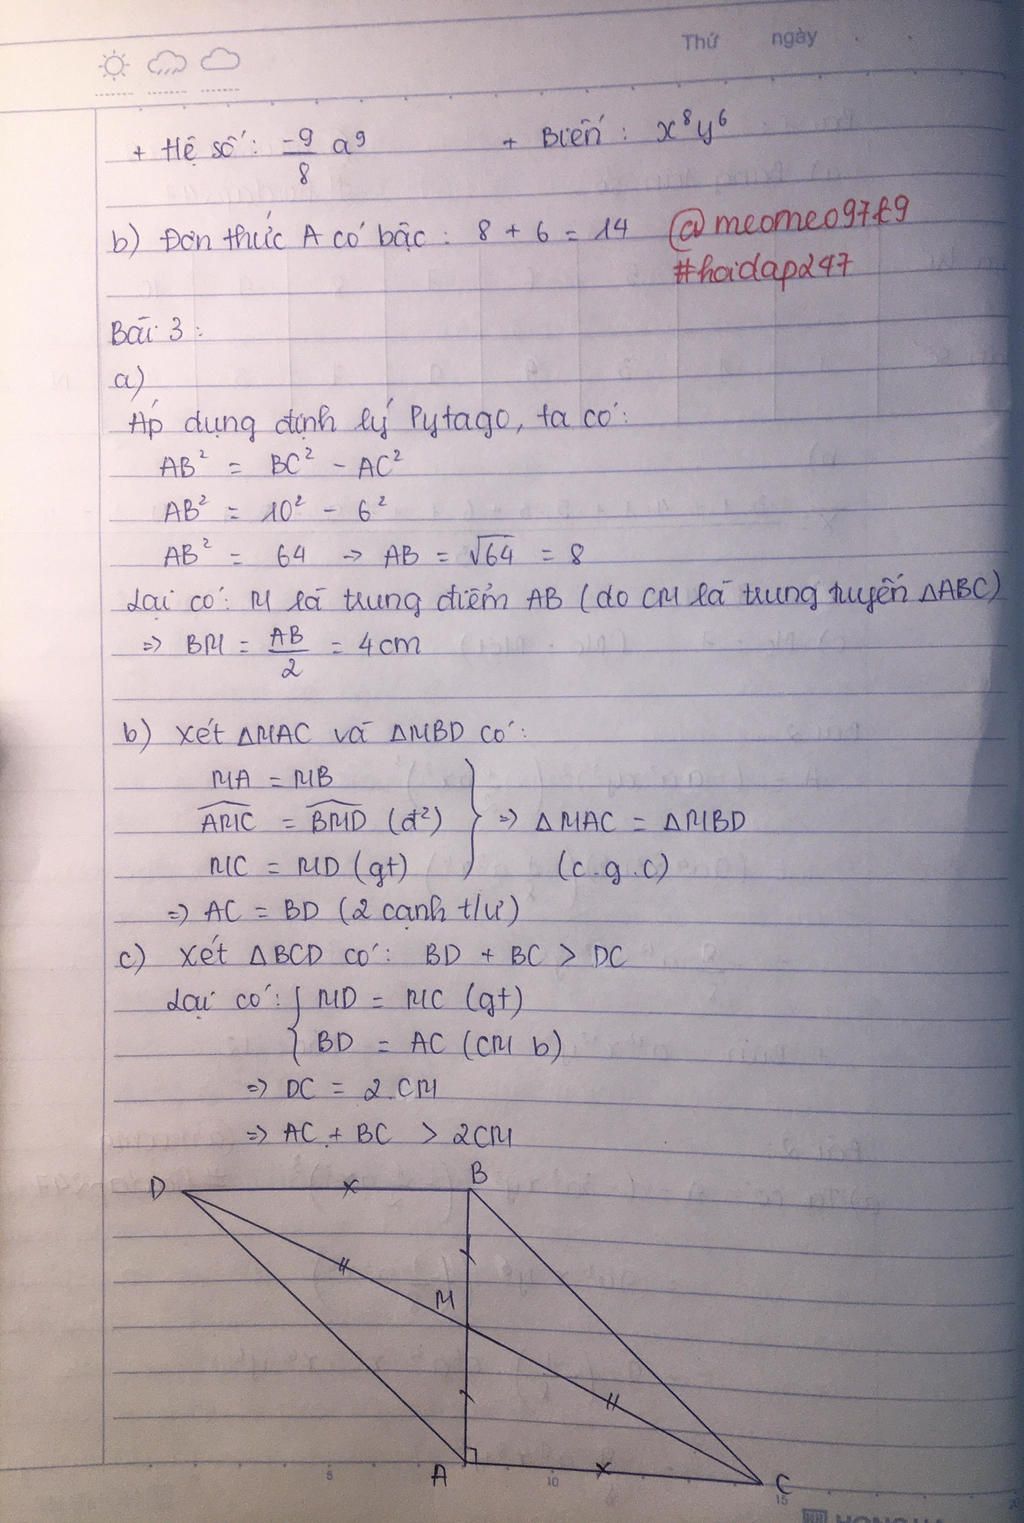 Thứ ngày
+ Hệ số: -9/8 a⁹ + Biến: x⁸y⁶
b) Đơn thức A có bậc: 8 + 6 = 14 @meomeo97t9
#hoidap247
Bài 3:
a)
Áp dụng định lý Pytago, ta có:
AB² = BC² - AC²
AB² = 10² - 6²
AB² = 64 → AB = √64 = 8
Lại có: M là trung điểm AB (do CM là trung tuyến ΔABC)
=> BM = AB/2 = 4cm
b) Xét ΔMAC và ΔMBD có:
MA = MB
AMC = BMD (đ²) => ΔMAC = ΔMBD
MC = MD (gt) (c.g.c)
=> AC = BD (2 cạnh t/ư)
c) Xét ΔBCD có: BD + BC > DC
Lại có: { MD = MC (gt)
BD = AC (CM b)
=> DC = 2.CM
=> AC + BC > 2CM
D B
M
A C
5 10 15